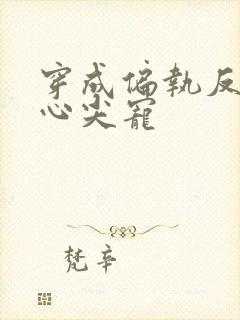 穿成偏執反
心尖寵
梵辛